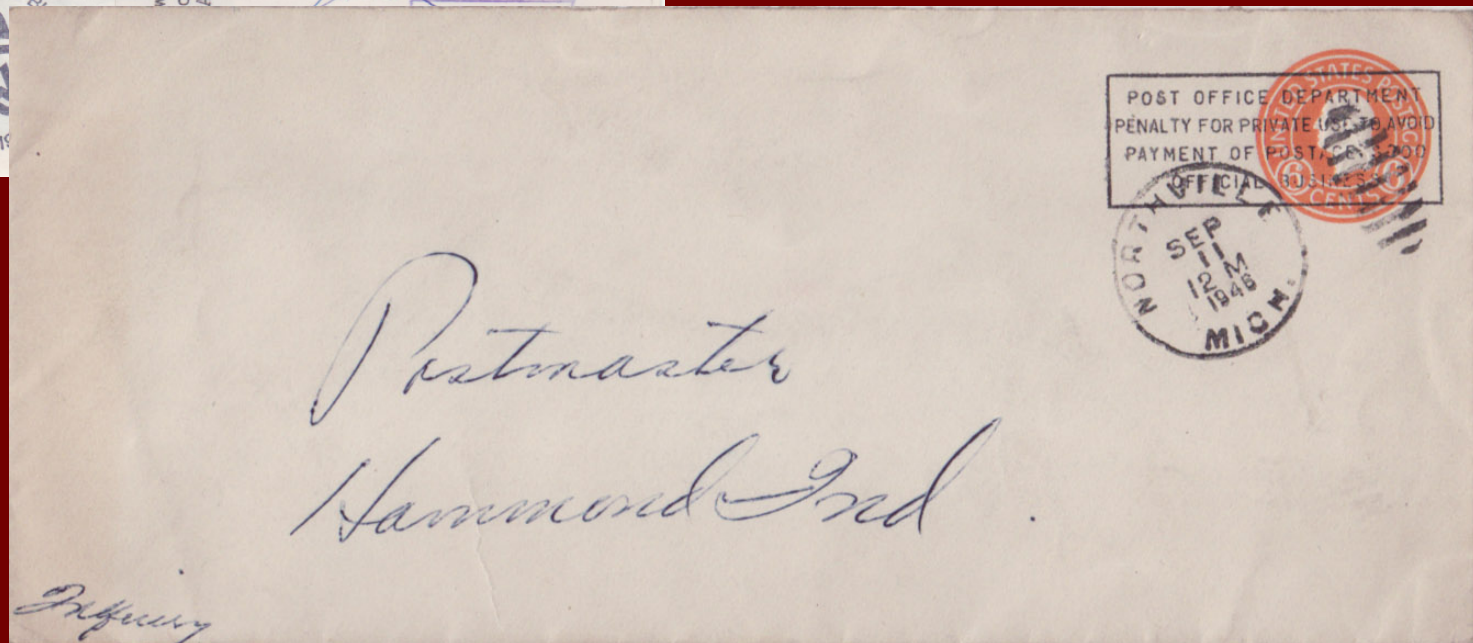 POST OFFICE DEPARTMENT
PENALTY FOR PRIVATE USE TO AVOID
PAYMENT OF POSTAGE, $300
OFFICIAL BUSINESS
UNITED STATES POSTAGE
6 CENTS 6
NORTHVILLE
SEP
11
12 M
1946
MICH.
Postmaster
Hammond Ind
Inquiry